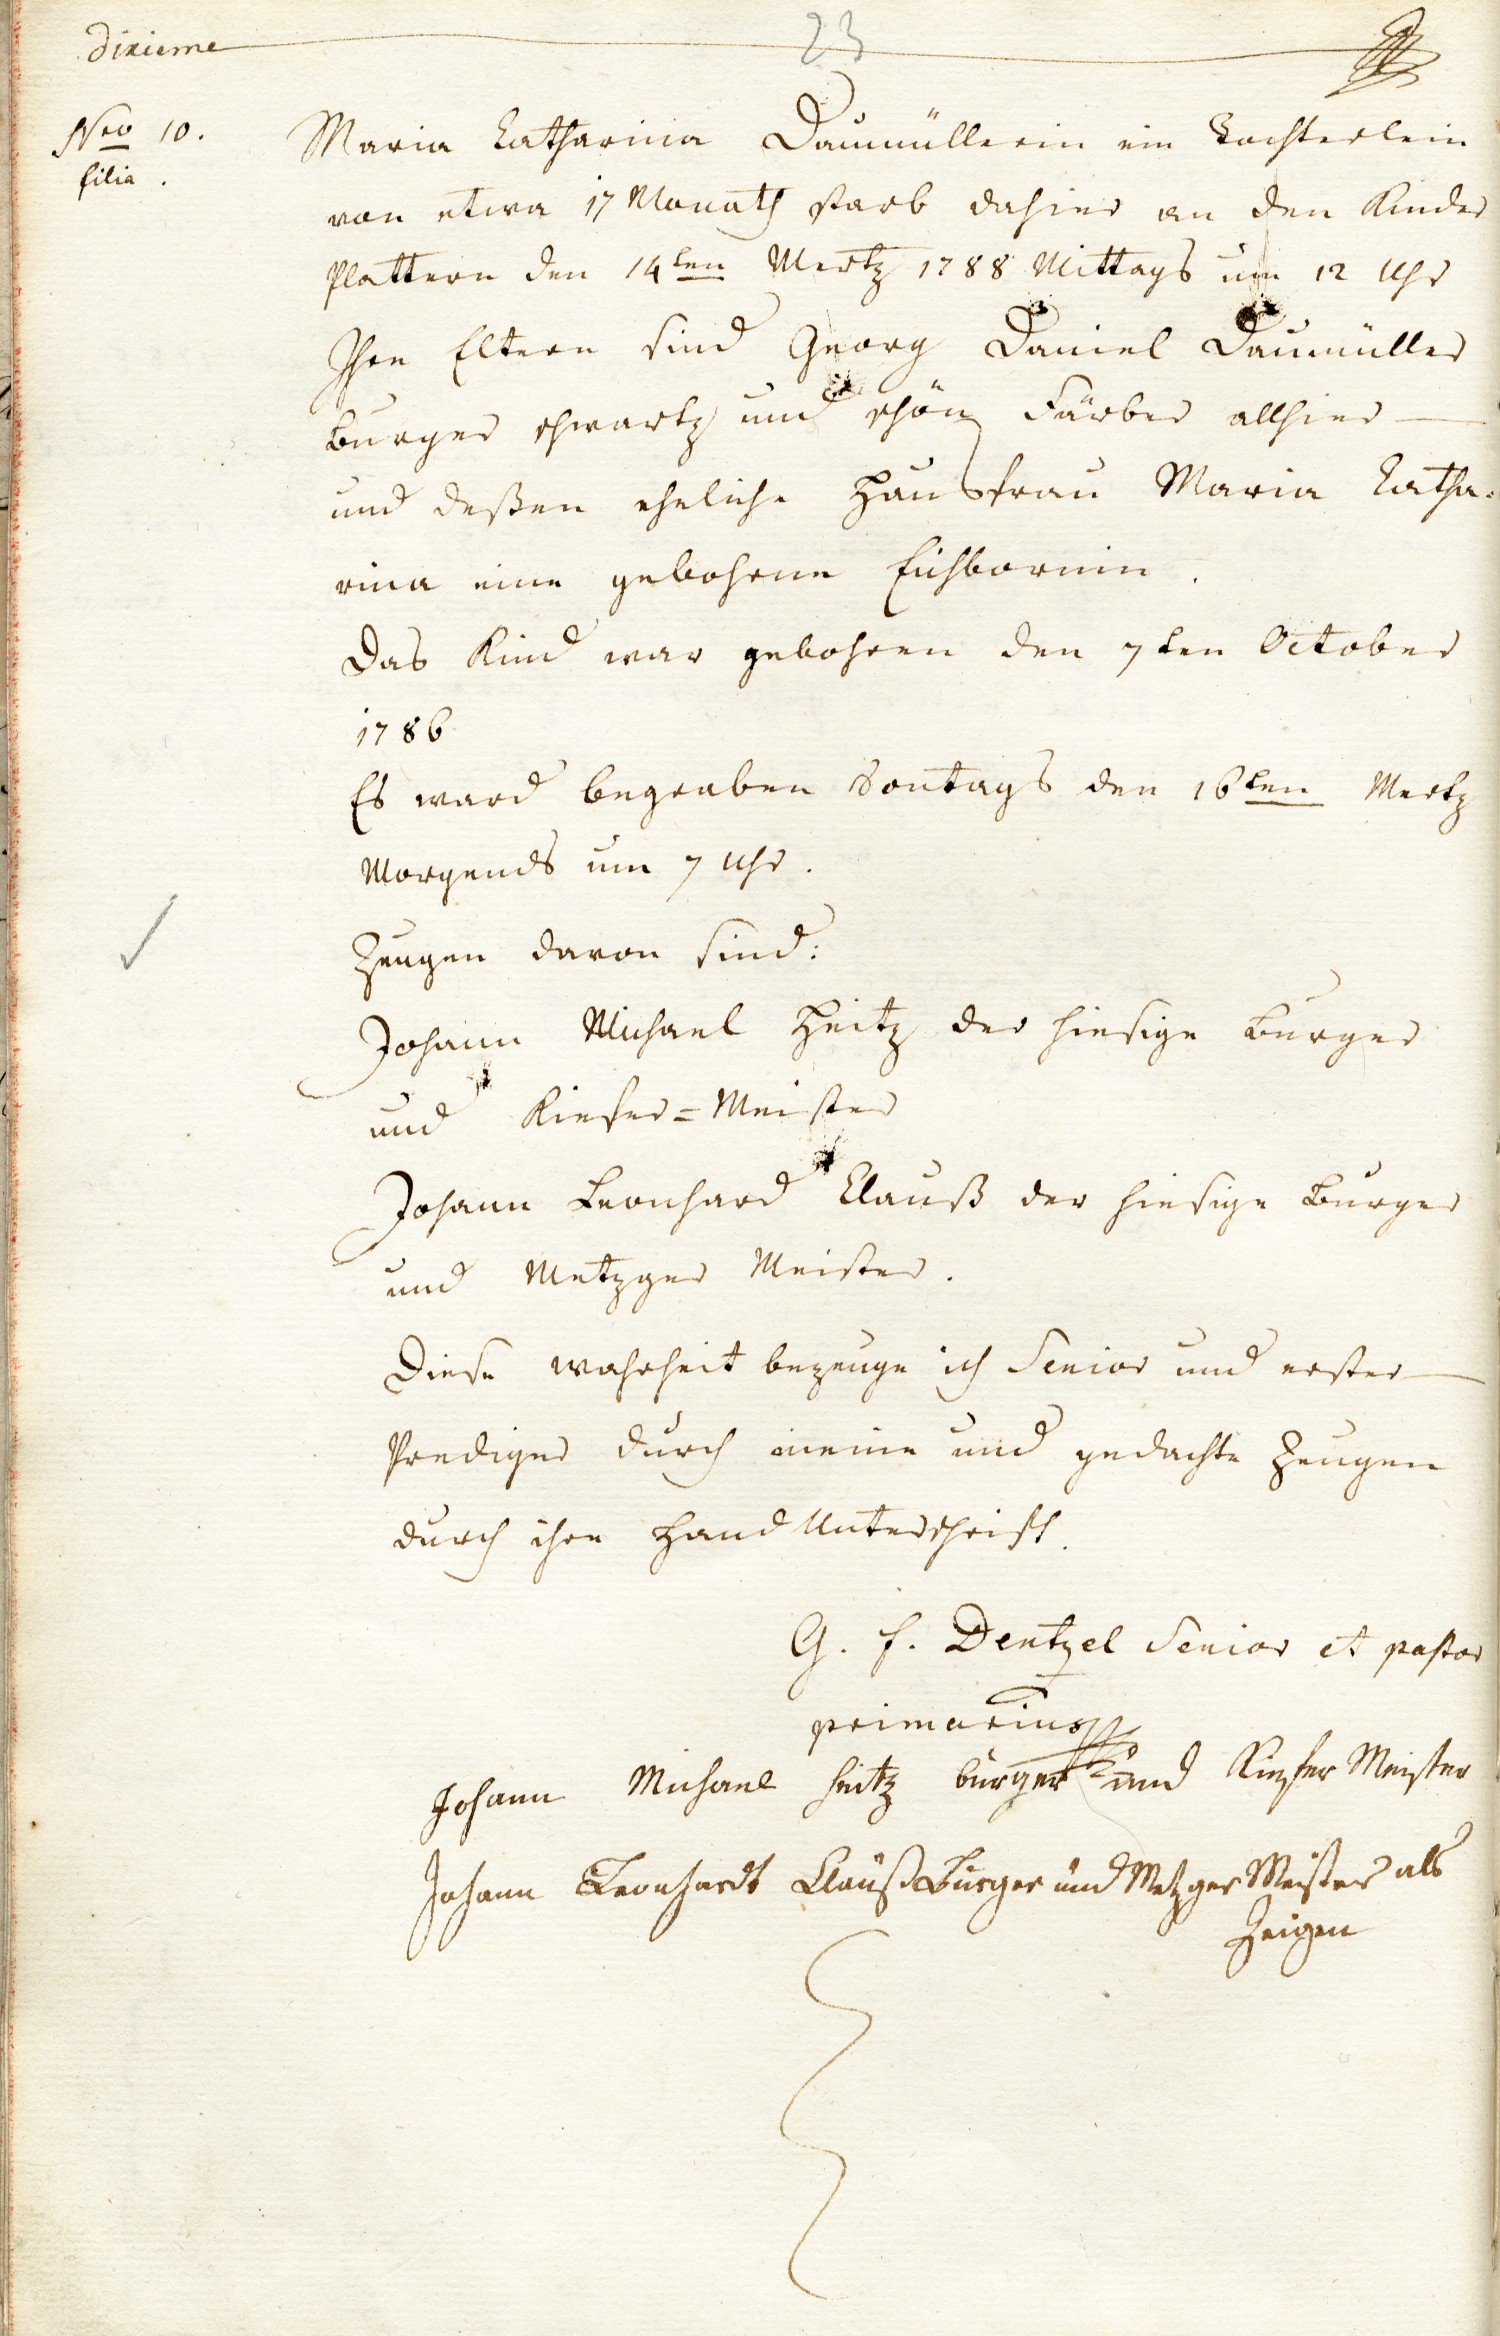 dixieme 23
Nro 10. Maria Catharina Daumüllerin ein Töchterlein
filia. von etwa 17 Monath starb dahier an den Kinder
Plattern den 14ten Mertz 1788 Mittags um 12 Uhr
Ihre Eltern sind Georg Daniel Daumüller
Burger schwartz und schön Färber allhier —
und deßen eheliche Hausfrau Maria Catha-
rina eine gebohrne Eichbornin.
Das Kind war gebohren den 7ten October
1786
Es ward begraben Sontags den 16ten Mertz
Morgends um 7 Uhr.
Zeugen davon sind:
Johann Michael Heitz der hiesige Burger
und Kiefer=Meister
Johann Leonhard Clauß der hiesige Burger
und Metzger Meister.
Diese wahrheit bezeuge ich Senior und erster —
Prediger durch meine und gedachte Zeugen
durch ihre Hand Unterschrift.
G. F. Dentzel Senior et pastor
primarius
Johann Michael Heitz burger und Kiefer Meister
Johann Leonhardt Clauß Burger und Metzger Meister als
Zeigen